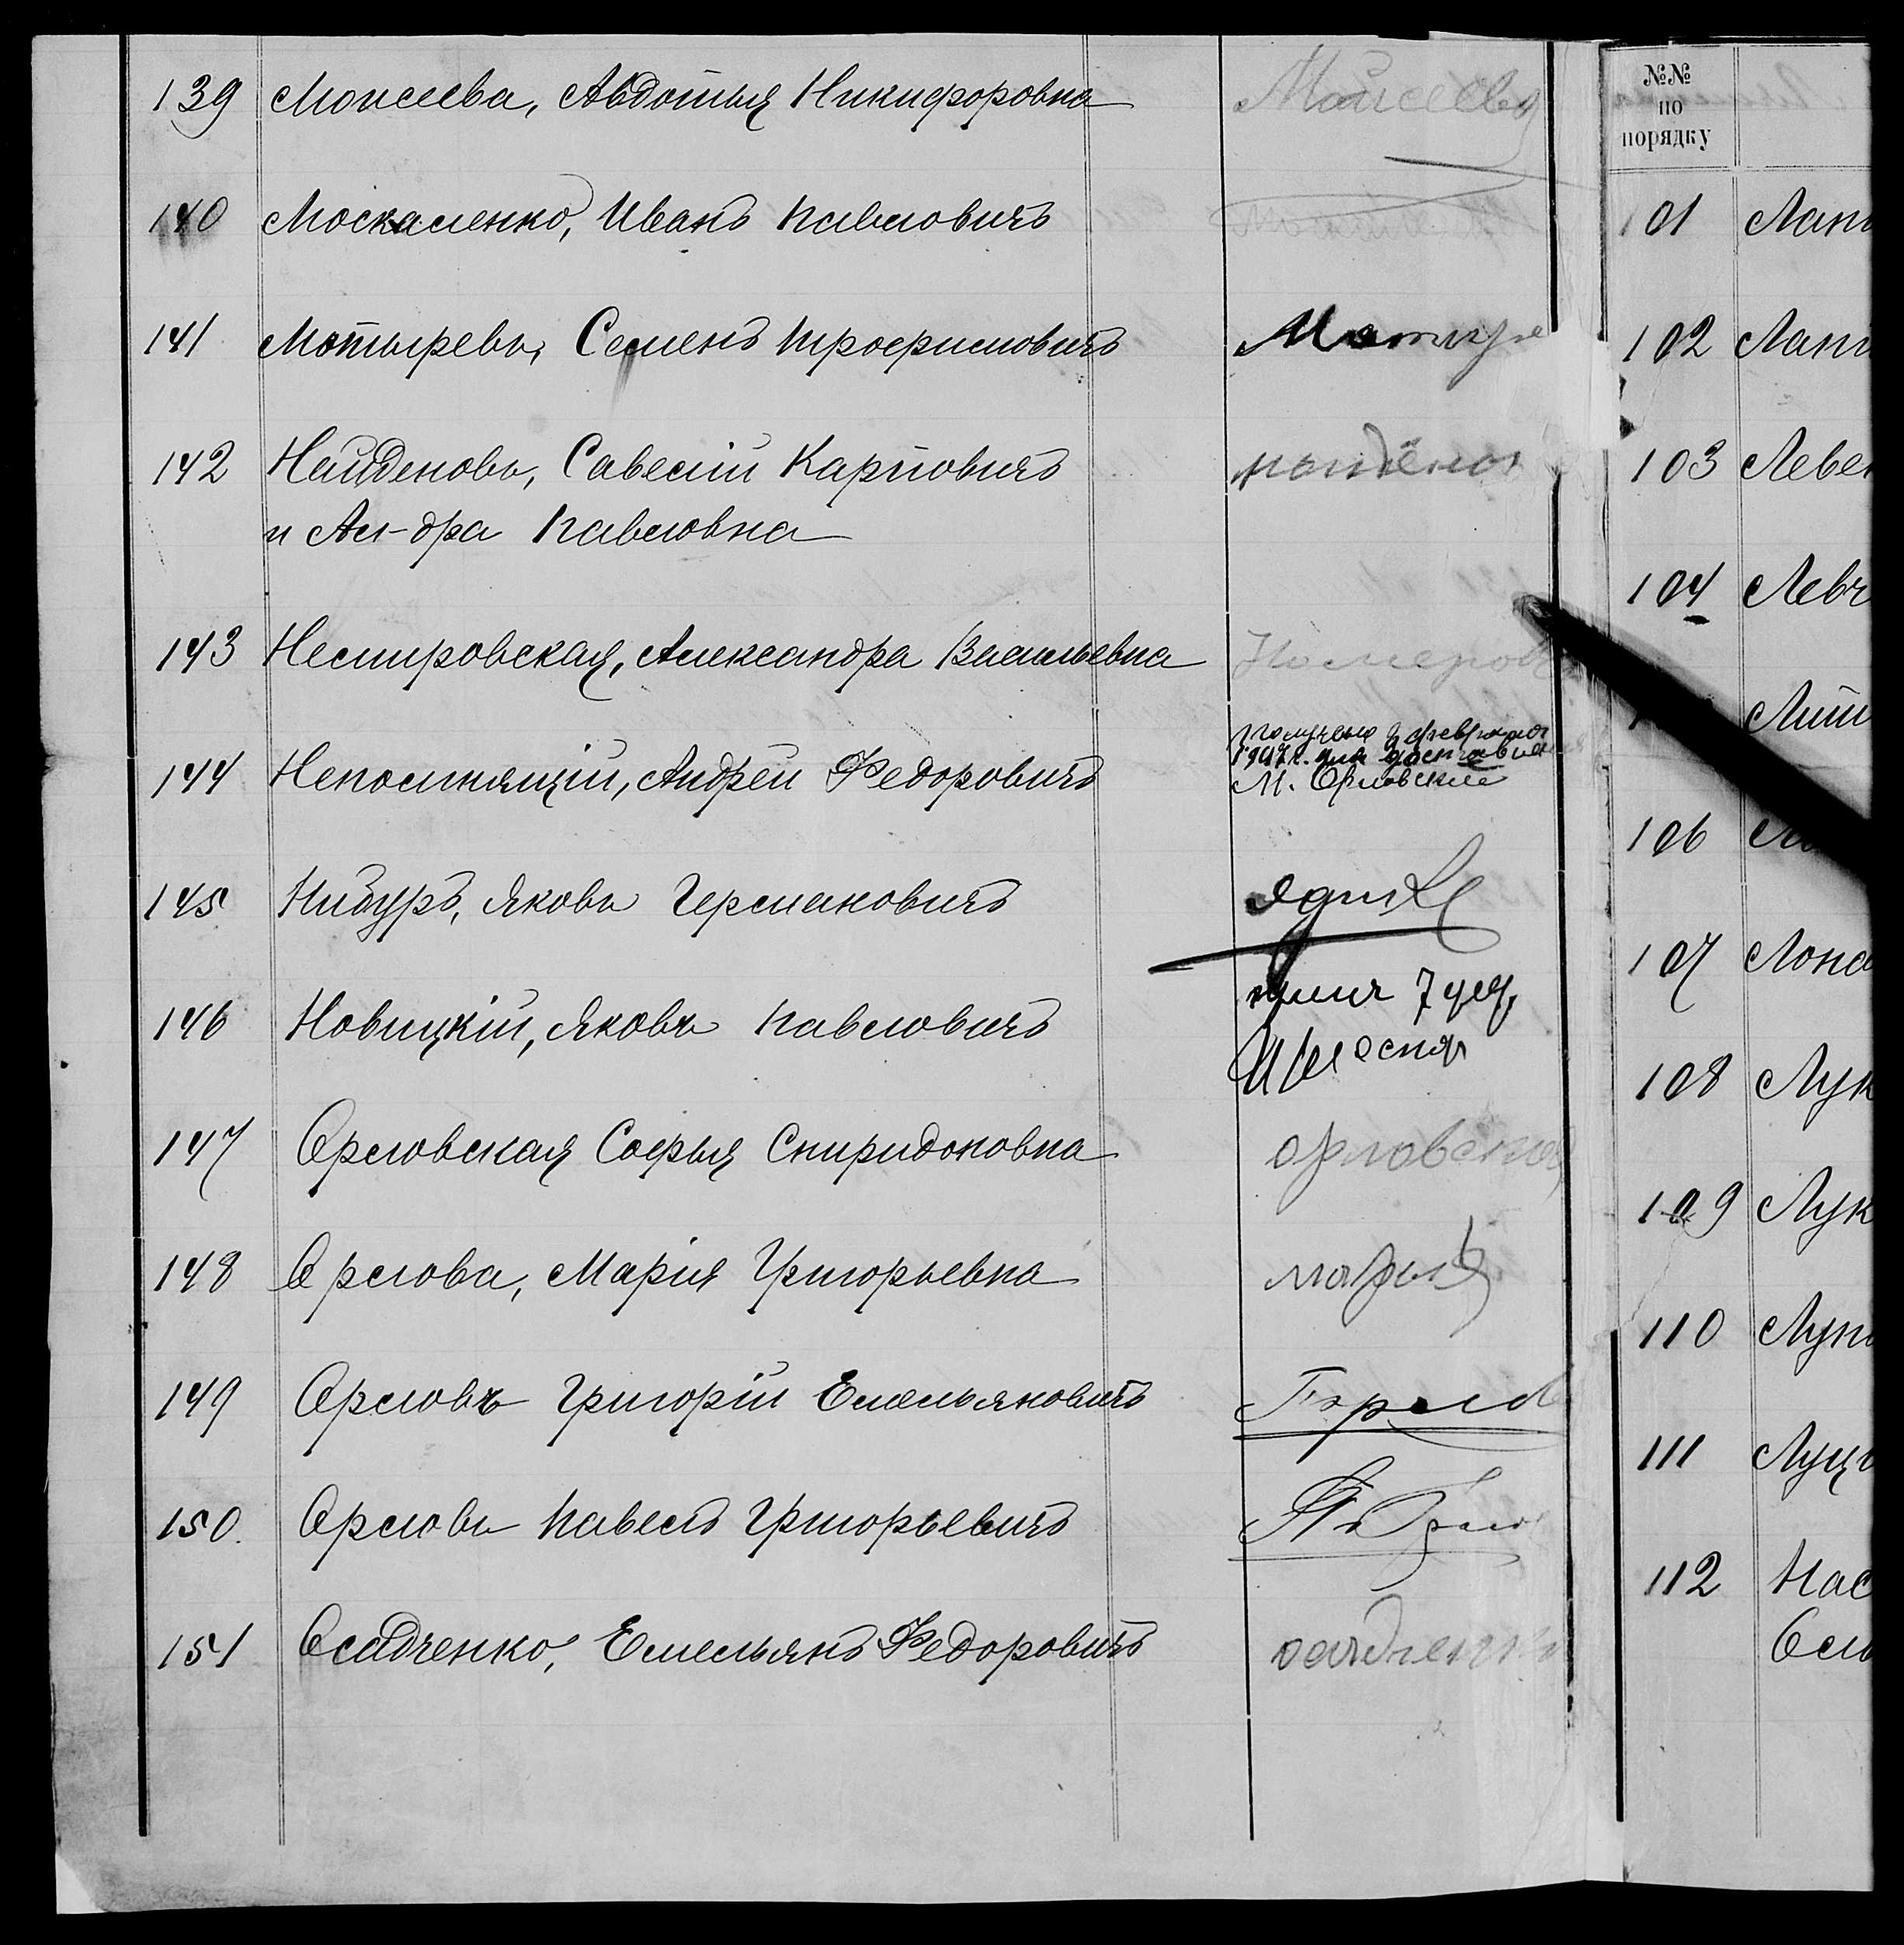 139 Моисеева, Авдотья Никифоровна Моисеева
140 Москаленко, Иванъ Павловичъ
141 Мотыревъ, Семенъ Трофимовичъ Мотыре
142 Найденовъ, Савелій Карповичъ найденов
и Ал-дра Павловна
143 Немировская, Александра Васильевна
144 Непомнящій, Андрей Федоровичъ
1907 г. для доставлен
М. Орловскій
145 Нибуръ, Яковъ Германовичъ
146 Новицкій, Яковъ Павловичъ
147 Орловская Софья Спиридоновна орловская
148 Орлова, Марія Григорьевна марья
149 Орловъ Григорій Емельяновичъ Г орлов
150. Орловъ Павелъ Григорьевичъ
151 Осадченко, Емельянъ Федоровичъ осадченко
№№
по
порядку
101 Лап
102 Лап
103 Левен
104 Левч
Лит
106
107 Лона
108 Лук
109 Лук
110 Луп
111 Луц
112 Нас